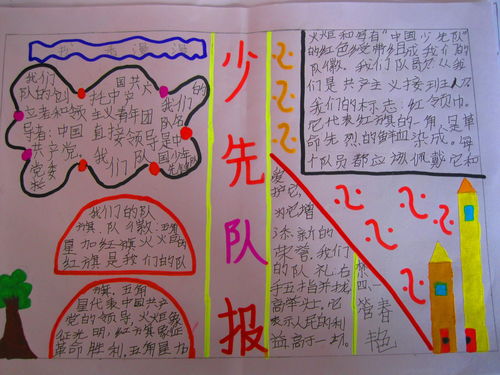 我们
队的创
立者和领
导者：中国
共产党。
党委
国共
托中产
主义青年团
直接领导
我们队
我们的
是中国
少先队报
我们的队
旗、队徽：五角
星加红旗火
红旗是我们的队
旗，五角
星代表中国共产
党的领导，火炬象
征光明，红旗象征
革命胜利，五角星加
火炬和写有“中国少先队”
的红色绶带组成我们的
队徽。我们队员
们是共产主义接班人
我们的标志：红领巾。
它代表红旗的一角，是革
命先烈的鲜血染成。每
个队员都应该佩戴它和
爱
护它
为它增
添新的
荣誉。我们
的队礼：右
手五指并拢
高举头上，它
表示人民的利
益高于一切。
四一
营春
艳